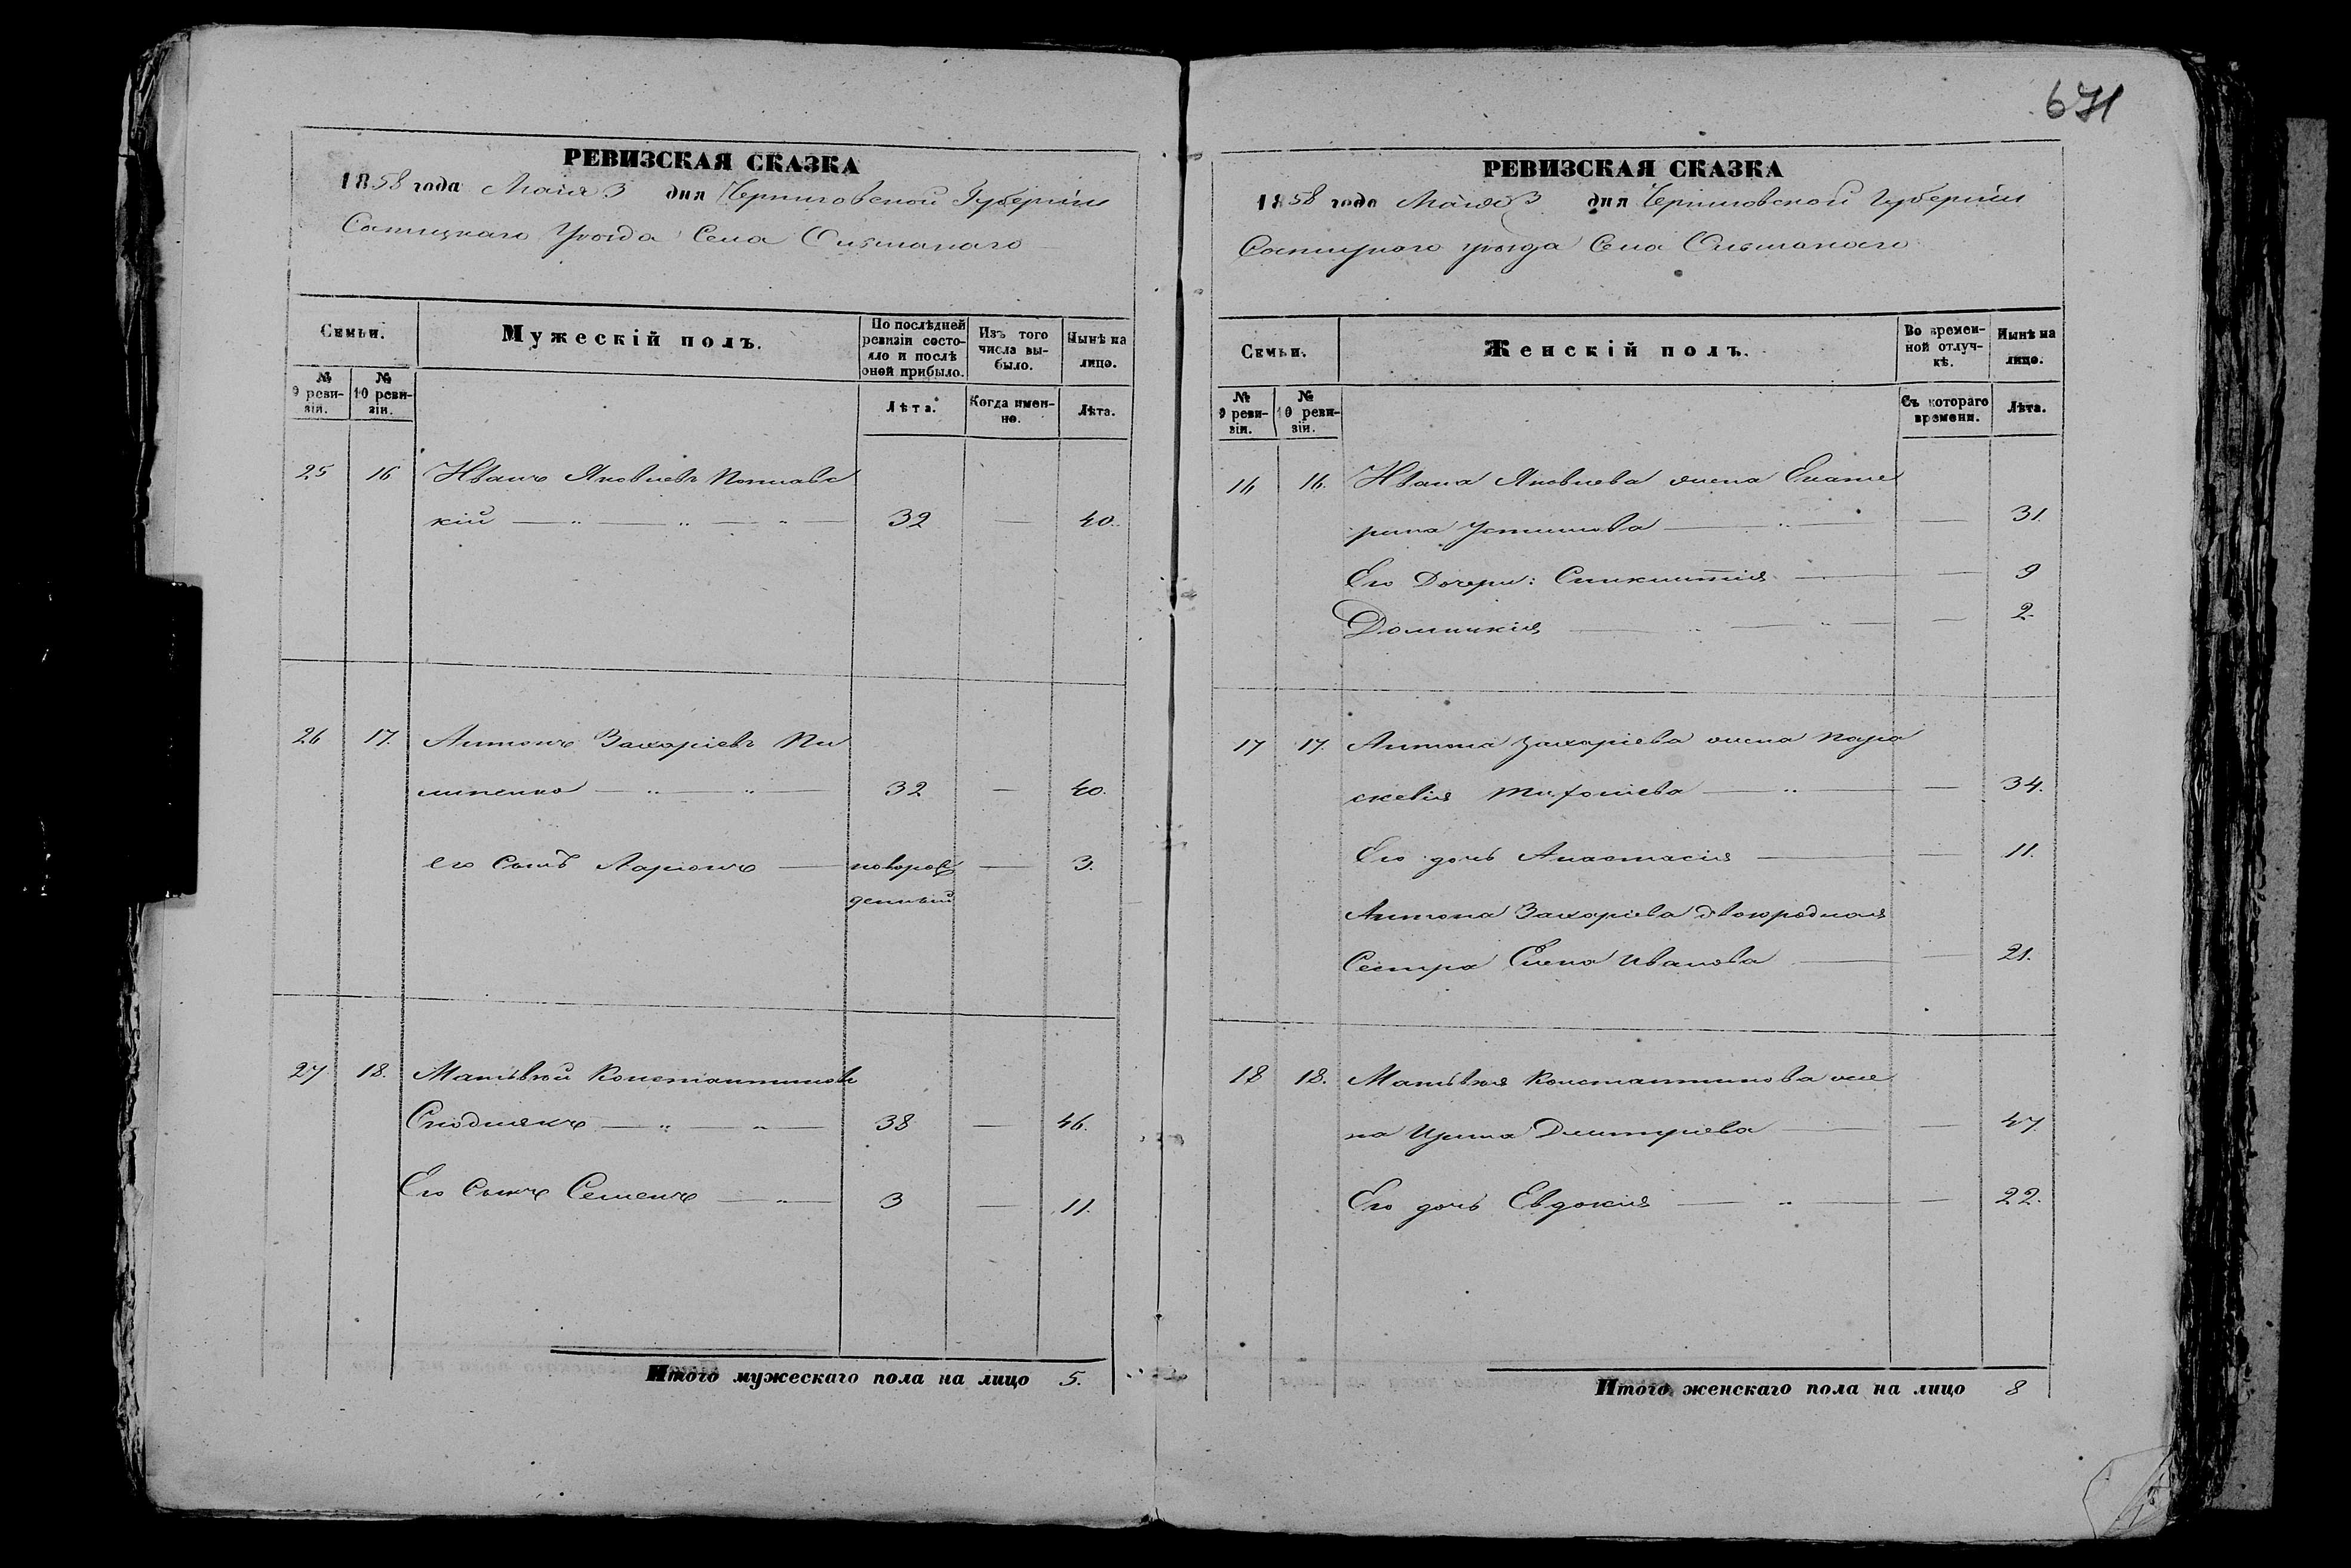 671
РЕВИЗСКАЯ СКАЗКА
1858 года Маія 3 дня Черниговской Губерніи
Сосницкаго Уѣзда Села Ольшанаго
Семьи.
Мужескій полъ.
По послѣдней ревизіи состояло и послѣ оной прибыло.
Изъ того числа выбыло.
Нынѣ на лицо.
№ 9 ревизіи.
№ 10 ревизіи.
Лѣта.
Когда именно.
Лѣта.
25 16 Иванъ Яковлевъ Поплавс
кій — „ — „ — „ — 32 — 40.
26 17. Антонъ Захаріевъ Пи
липенко — „ — „ — 32 — 40.
его сынъ Ларіонъ — новорож — 3.
денный
27 18. Матвѣй Константиновъ
— „ — „ — 38 — 46.
Его сынъ Семенъ — „ — 3 — 11.
Итого мужескаго пола на лицо 5.
РЕВИЗСКАЯ СКАЗКА
1858 года Маія 3 дня Черниговской Губерніи
Сосницкаго уѣзда Села Ольшанаго
Семьи.
Женскій полъ.
Во временной отлучкѣ.
Нынѣ на лицо.
№ 9 ревизіи.
№ 10 ревизіи.
Съ котораго времени.
Лѣта.
16 16. Ивана Яковлева жена Екате
рина Устинова — „ — — 31.
Его Дочери: — — 9
Домникія — „ — „ — — 2
17 17. Антона Захаріева жена Пара
скевія — „ — — 34.
Его дочь Анастасія — — 11.
Антона Захаріева двоюродная
Сестра Елена Иванова — — 21.
18 18. Матвѣя Константинова же
на Ирина Дмитріева — — 47
Его дочь Евдокія — „ — — 22.
Итого женскаго пола на лицо 8